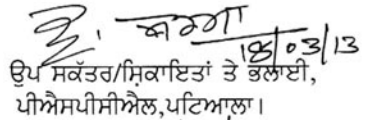 18/03/13
ਉਪ ਸਕੱਤਰ/ਸ਼ਿਕਾਇਤਾਂ ਤੇ ਭਲਾਈ,
ਪੀਐਸਪੀਸੀਐਲ,ਪਟਿਆਲਾ।